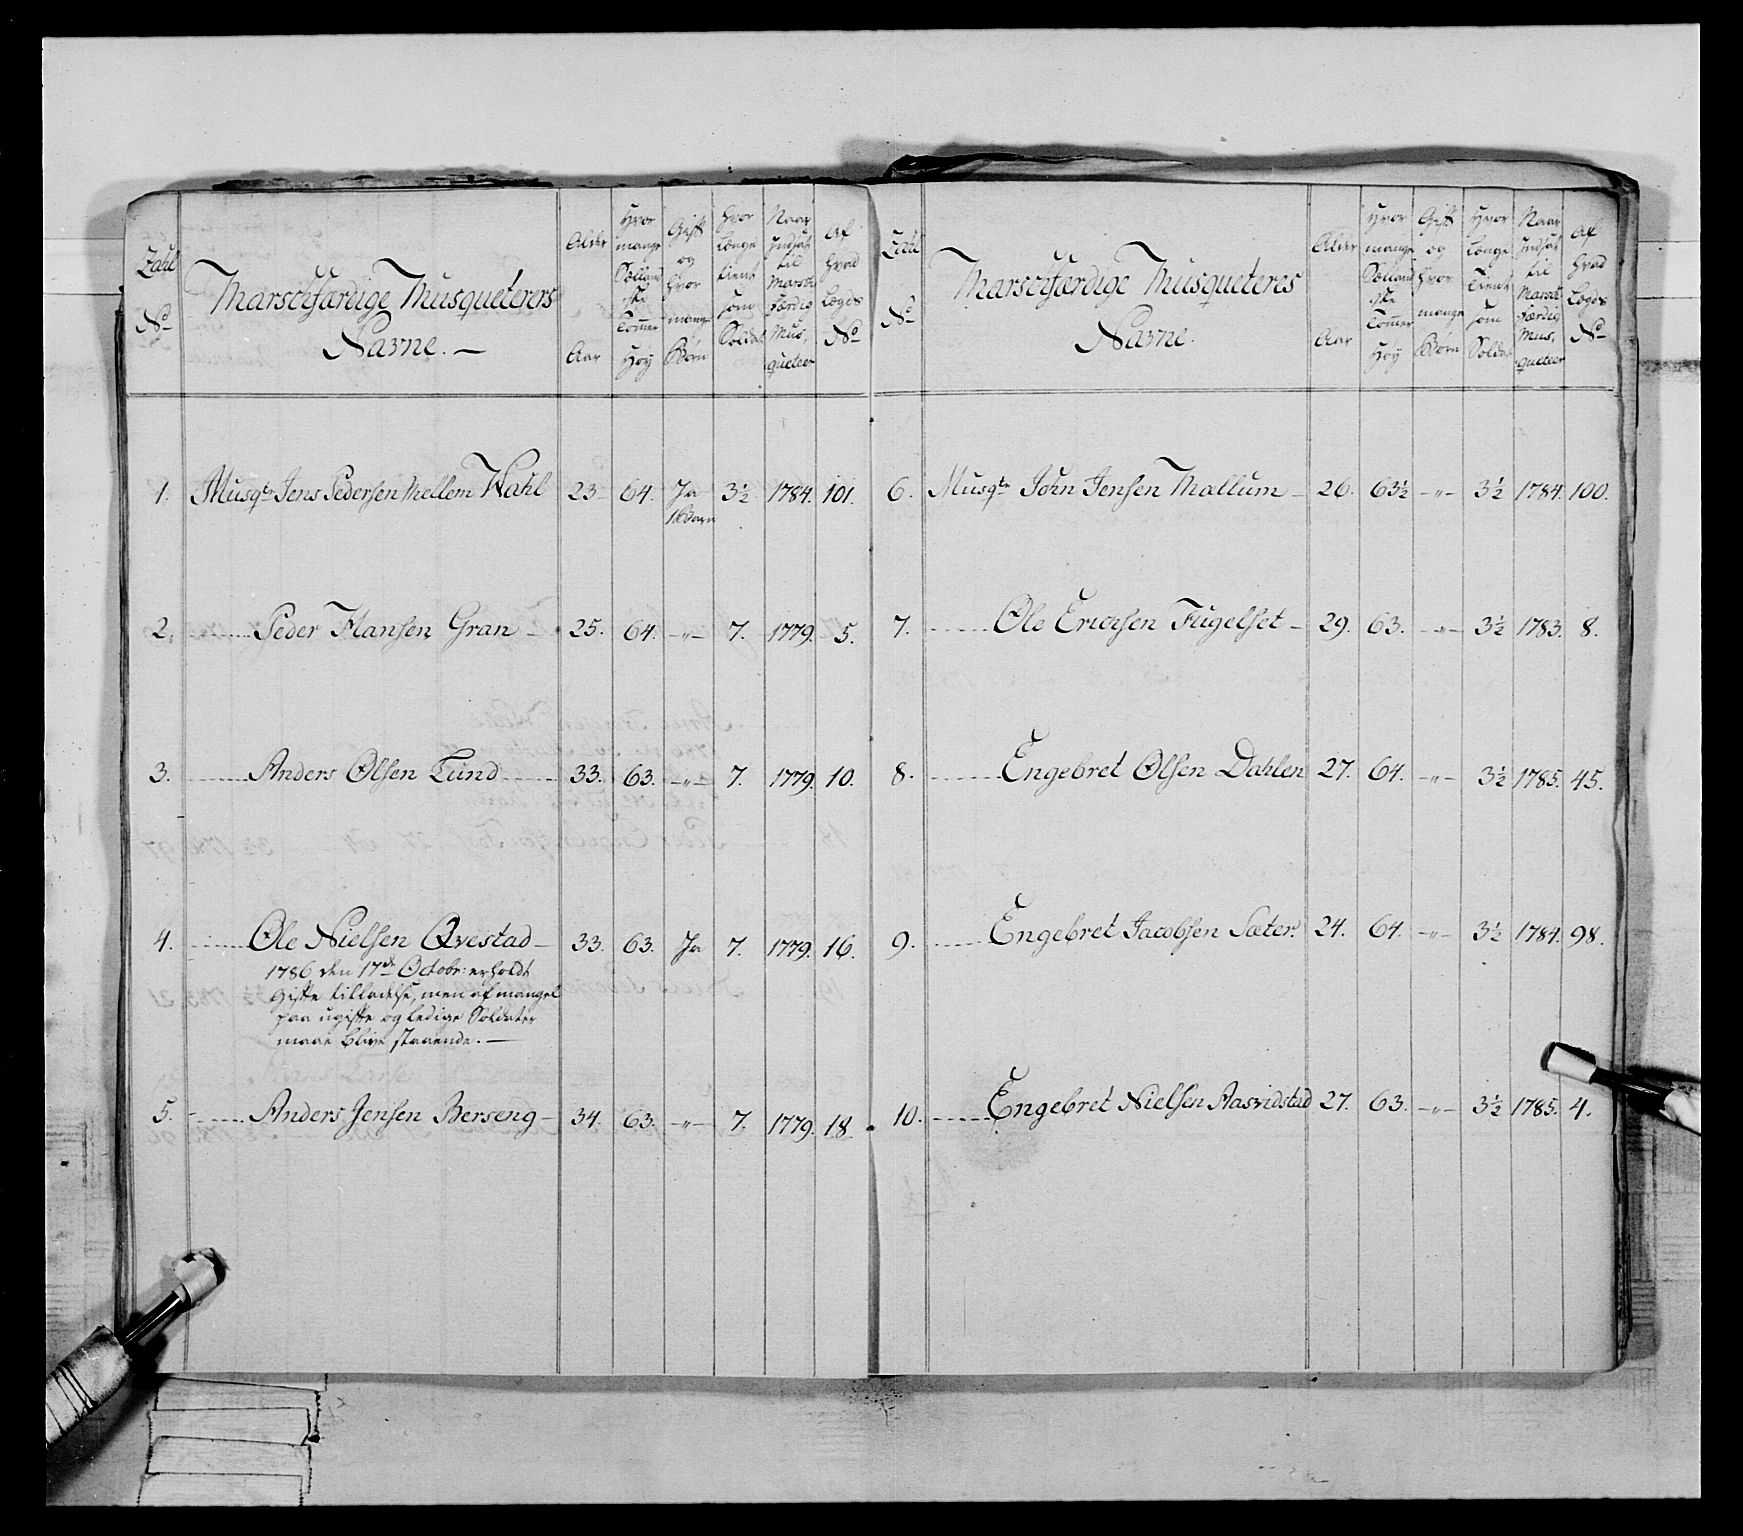 Zahl No
Marschfærdige Musqueterers
Navne. —
Alder Aar
Hvor mange Sællandske Tommer Høy
Gift og hvor mange Børn
Hvor Længe tient som Soldat
Naar Indsat til Marschfærdig Musqueteer
Af hvad Lægds No
1. Musqtr Jens Pedersen Mellem Wahl 23 64. Ja 1 Barn 3½ 1784. 101.
2. Peder Hansen Gran – 25. 64. –"– 7. 1779. 5.
3. Anders Olsen Lund 33. 63. –"– 7. 1779. 10.
4. Ole Nielsen Qvestad – 33. 63. Ja 7. 1779. 16.
1786 den 17de Octobr: erholdt
Gifte tilladelse, men af mangel
paa ugifte og ledige Soldater
maae blive staaende. —
5. Anders Jensen Berseng – 34. 63. –"– 7. 1779. 18.
Zahl No
Marschfærdige Musqueteres
Navne.
Alder Aar
Hvor mange Sællandske Tommer Høy
Gift og hvor mange Børn
Hvor Længe Tient som Soldat
Naar Indsat til Marschfærdig Musqueteer
Af hvad Lægds No
6. Musqtr John Jensen Mællum – 26. 63½ –"– 3½ 1784. 100.
7. Ole Ericksen Fugelset – 29. 63. –"– 3½ 1783. 8.
8. Engebret Olsen Dahlen 27. 64. –"– 3½ 1785. 45.
9. Engebret Jacobsen Sæter. 24. 64. –"– 3½ 1784. 98.
10. Engebret Nielsen Aasvidstad 27. 63. –"– 3½ 1785. 4.